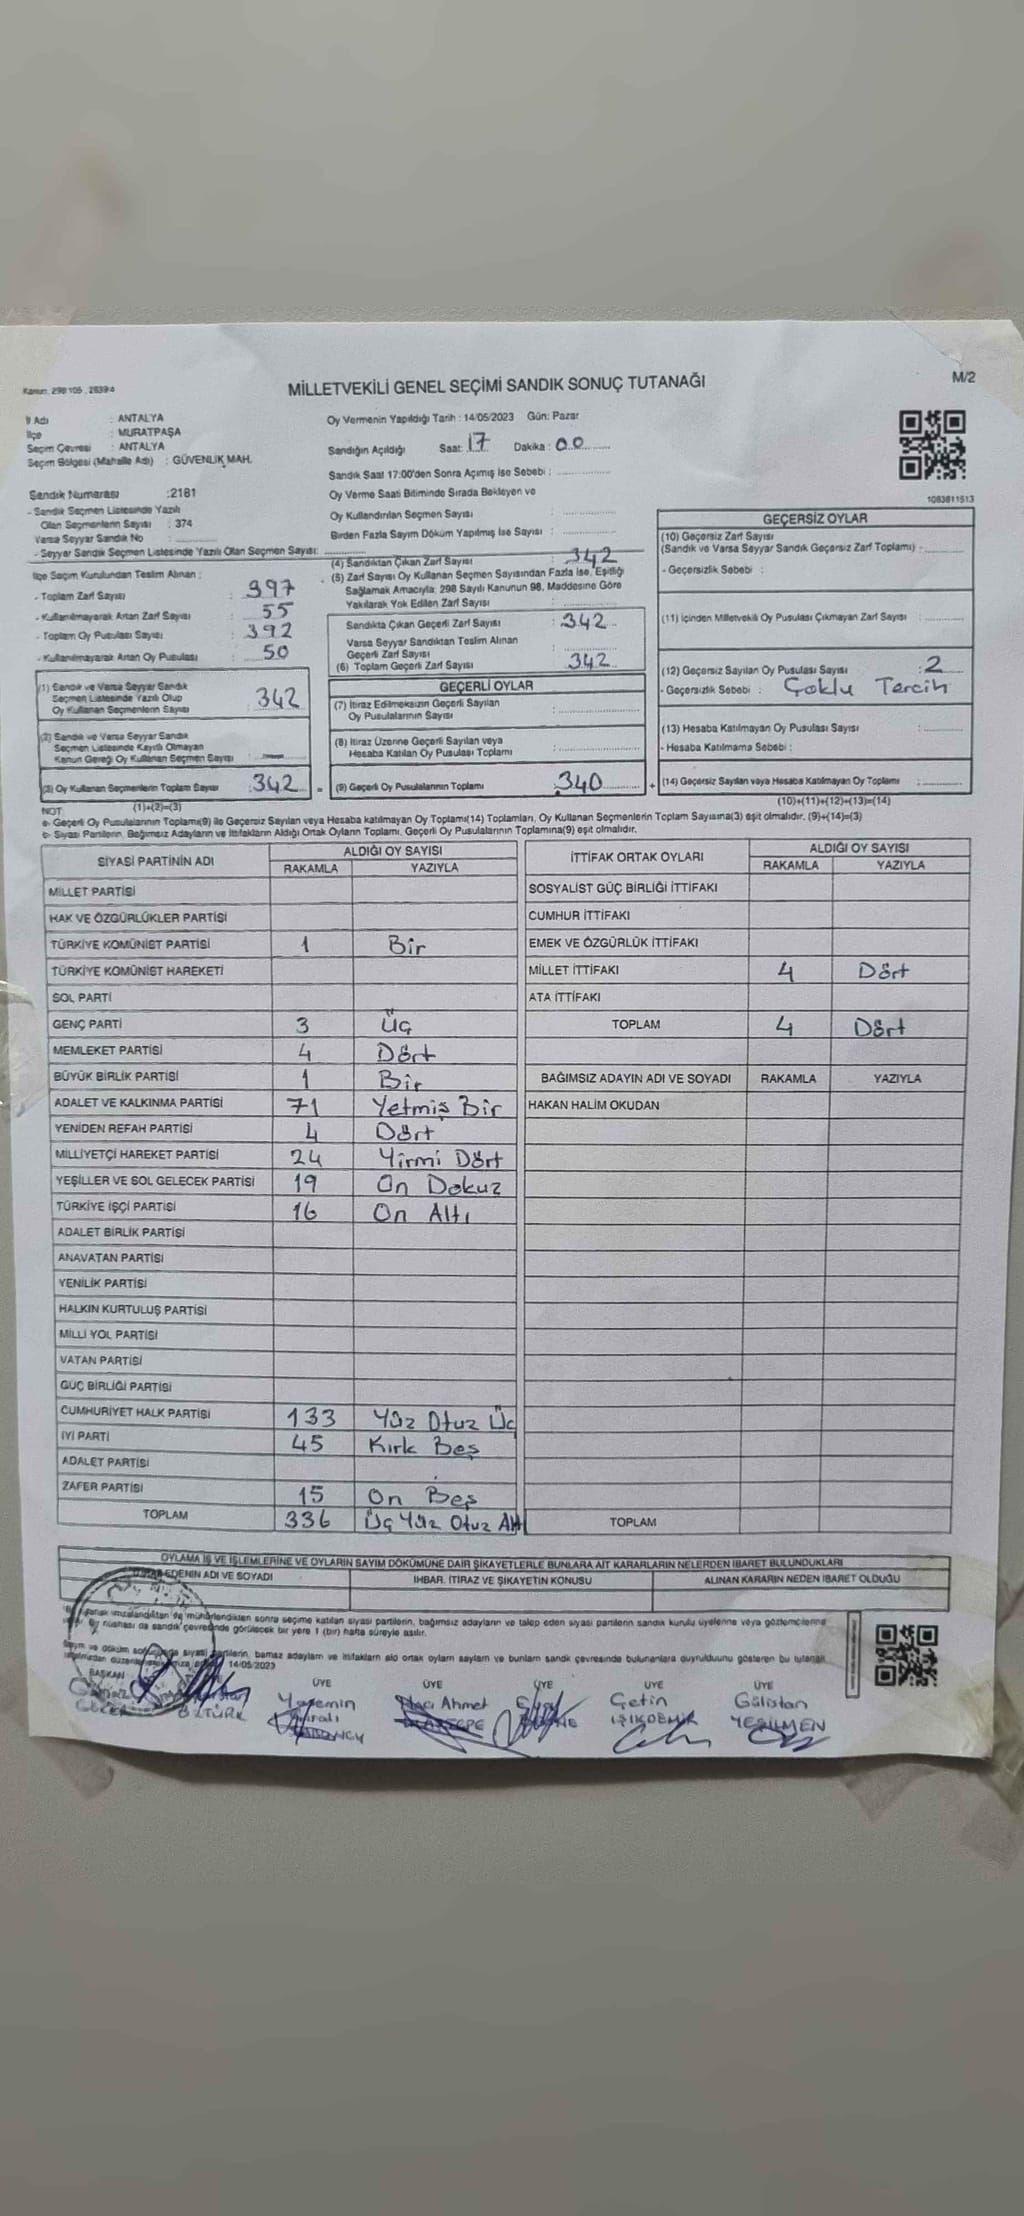 Kanun: 298 105 , 2839/4
MİLLETVEKİLİ GENEL SEÇİMİ SANDIK SONUÇ TUTANAĞI
M/2
İl Adı : ANTALYA
İlçe : MURATPAŞA
Seçim Çevresi : ANTALYA
Seçim Bölgesi (Mahalle Adı) : GÜVENLİK MAH.
Sandık Numarası :2181
- Sandık Seçmen Listesinde Yazılı
Olan Seçmenlerin Sayısı : 374
Varsa Seyyar Sandık No
- Seyyar Sandık Seçmen Listesinde Yazılı Olan Seçmen Sayısı:
Oy Vermenin Yapıldığı Tarih : 14/05/2023 Gün: Pazar
Sandığın Açıldığı Saat: 17 Dakika : 00
Sandık Saat 17:00'den Sonra Açımış İse Sebebi :
Oy Verme Saati Bitiminde Sırada Bekleyen ve
Oy Kullandırılan Seçmen Sayısı :
Birden Fazla Sayım Döküm Yapılmış İse Sayısı :
1083811513
İlçe Seçim Kurulundan Teslim Alınan :
- Toplam Zarf Sayısı : 397
- Kullanılmayarak Artan Zarf Sayısı : 55
- Toplam Oy Pusulası Sayısı : 392
- Kullanılmayarak Artan Oy Pusulası : 50
(1) Sandık ve Varsa Seyyar Sandık
Seçmen Listesinde Yazılı Olup
Oy Kullanan Seçmenlerin Sayısı : 342
(2) Sandık ve Varsa Seyyar Sandık
Seçmen Listesinde Kayıtlı Olmayan
Kanun Gereği Oy Kullanan Seçmen Sayısı :
(3) Oy Kullanan Seçmenlerin Toplam Sayısı : 342
(1)+(2)=(3)
(4) Sandıktan Çıkan Zarf Sayısı : 342
(5) Zarf Sayısı Oy Kullanan Seçmen Sayısından Fazla İse, Eşitliği
Sağlamak Amacıyla, 298 Sayılı Kanunun 98. Maddesine Göre
Yakılarak Yok Edilen Zarf Sayısı :
Sandıkta Çıkan Geçerli Zarf Sayısı : 342
Varsa Seyyar Sandıktan Teslim Alınan
Geçerli Zarf Sayısı :
(6) Toplam Geçerli Zarf Sayısı : 342
GEÇERLİ OYLAR
(7) İtiraz Edilmeksizin Geçerli Sayılan
Oy Pusulalarının Sayısı :
(8) İtiraz Üzerine Geçerli Sayılan veya
Hesaba Katılan Oy Pusulası Toplamı :
= (9) Geçerli Oy Pusulalarının Toplamı : 340 +
GEÇERSİZ OYLAR
(10) Geçersiz Zarf Sayısı
(Sandık ve Varsa Seyyar Sandık Geçersiz Zarf Toplamı) :
- Geçersizlik Sebebi :
(11) İçinden Milletvekili Oy Pusulası Çıkmayan Zarf Sayısı :
(12) Geçersiz Sayılan Oy Pusulası Sayısı : 2
- Geçersizlik Sebebi : Çoklu Tercih
(13) Hesaba Katılmayan Oy Pusulası Sayısı :
- Hesaba Katılmama Sebebi :
(14) Geçersiz Sayılan veya Hesaba Katılmayan Oy Toplamı :
(10)+(11)+(12)+(13)=(14)
NOT
a- Geçerli Oy Pusulalarının Toplamı(9) ile Geçersiz Sayılan veya Hesaba katılmayan Oy Toplamı(14) Toplamları, Oy Kullanan Seçmenlerin Toplam Sayısına(3) eşit olmalıdır. (9)+(14)=(3)
b- Siyasi Partilerin, Bağımsız Adayların ve İttifakların Aldığı Ortak Oyların Toplamı, Geçerli Oy Pusulalarının Toplamına(9) eşit olmalıdır.
SİYASİ PARTİNİN ADI ALDIĞI OY SAYISI
RAKAMLA YAZIYLA
MİLLET PARTİSİ
HAK VE ÖZGÜRLÜKLER PARTİSİ
TÜRKİYE KOMÜNİST PARTİSİ 1 Bir
TÜRKİYE KOMÜNİST HAREKETİ
SOL PARTİ
GENÇ PARTİ 3 Üç
MEMLEKET PARTİSİ 4 Dört
BÜYÜK BİRLİK PARTİSİ 1 Bir
ADALET VE KALKINMA PARTİSİ 71 Yetmiş Bir
YENİDEN REFAH PARTİSİ 4 Dört
MİLLİYETÇİ HAREKET PARTİSİ 24 Yirmi Dört
YEŞİLLER VE SOL GELECEK PARTİSİ 19 On Dokuz
TÜRKİYE İŞÇİ PARTİSİ 16 On Altı
ADALET BİRLİK PARTİSİ
ANAVATAN PARTİSİ
YENİLİK PARTİSİ
HALKIN KURTULUŞ PARTİSİ
MİLLİ YOL PARTİSİ
VATAN PARTİSİ
GÜÇ BİRLİĞİ PARTİSİ
CUMHURİYET HALK PARTİSİ 133 Yüz Otuz Üç
İYİ PARTİ 45 Kırk Beş
ADALET PARTİSİ
ZAFER PARTİSİ 15 On Beş
TOPLAM 336 Üç Yüz Otuz Altı
İTTİFAK ORTAK OYLARI ALDIĞI OY SAYISI
RAKAMLA YAZIYLA
SOSYALİST GÜÇ BİRLİĞİ İTTİFAKI
CUMHUR İTTİFAKI
EMEK VE ÖZGÜRLÜK İTTİFAKI
MİLLET İTTİFAKI 4 Dört
ATA İTTİFAKI
TOPLAM 4 Dört
BAĞIMSIZ ADAYIN ADI VE SOYADI RAKAMLA YAZIYLA
HAKAN HALİM OKUDAN
TOPLAM
OYLAMA İŞ VE İŞLEMLERİNE VE OYLARIN SAYIM DÖKÜMÜNE DAİR ŞİKAYETLERLE BUNLARA AİT KARARLARIN NELERDEN İBARET BULUNDUKLARI
EDENİN ADI VE SOYADI İHBAR, İTİRAZ VE ŞİKAYETİN KONUSU ALINAN KARARIN NEDEN İBARET OLDUĞU
imzalandıktan ve mühürlendikten sonra seçime katılan siyasi partilerin, bağımsız adayların ve talep eden siyasi partilerin sandık kurulu üyelerine veya gözlemcilerine
nüshası da sandık çevresinde görülecek bir yere 1 (bir) hafta süreyle asılır.
14/05/2023
BAŞKAN ÜYE ÜYE ÜYE ÜYE ÜYE
ÖZTÜRK Yasemin Hacı Ahmet Çetin Gülistan
IŞIKDEMİR YEŞİLMEN